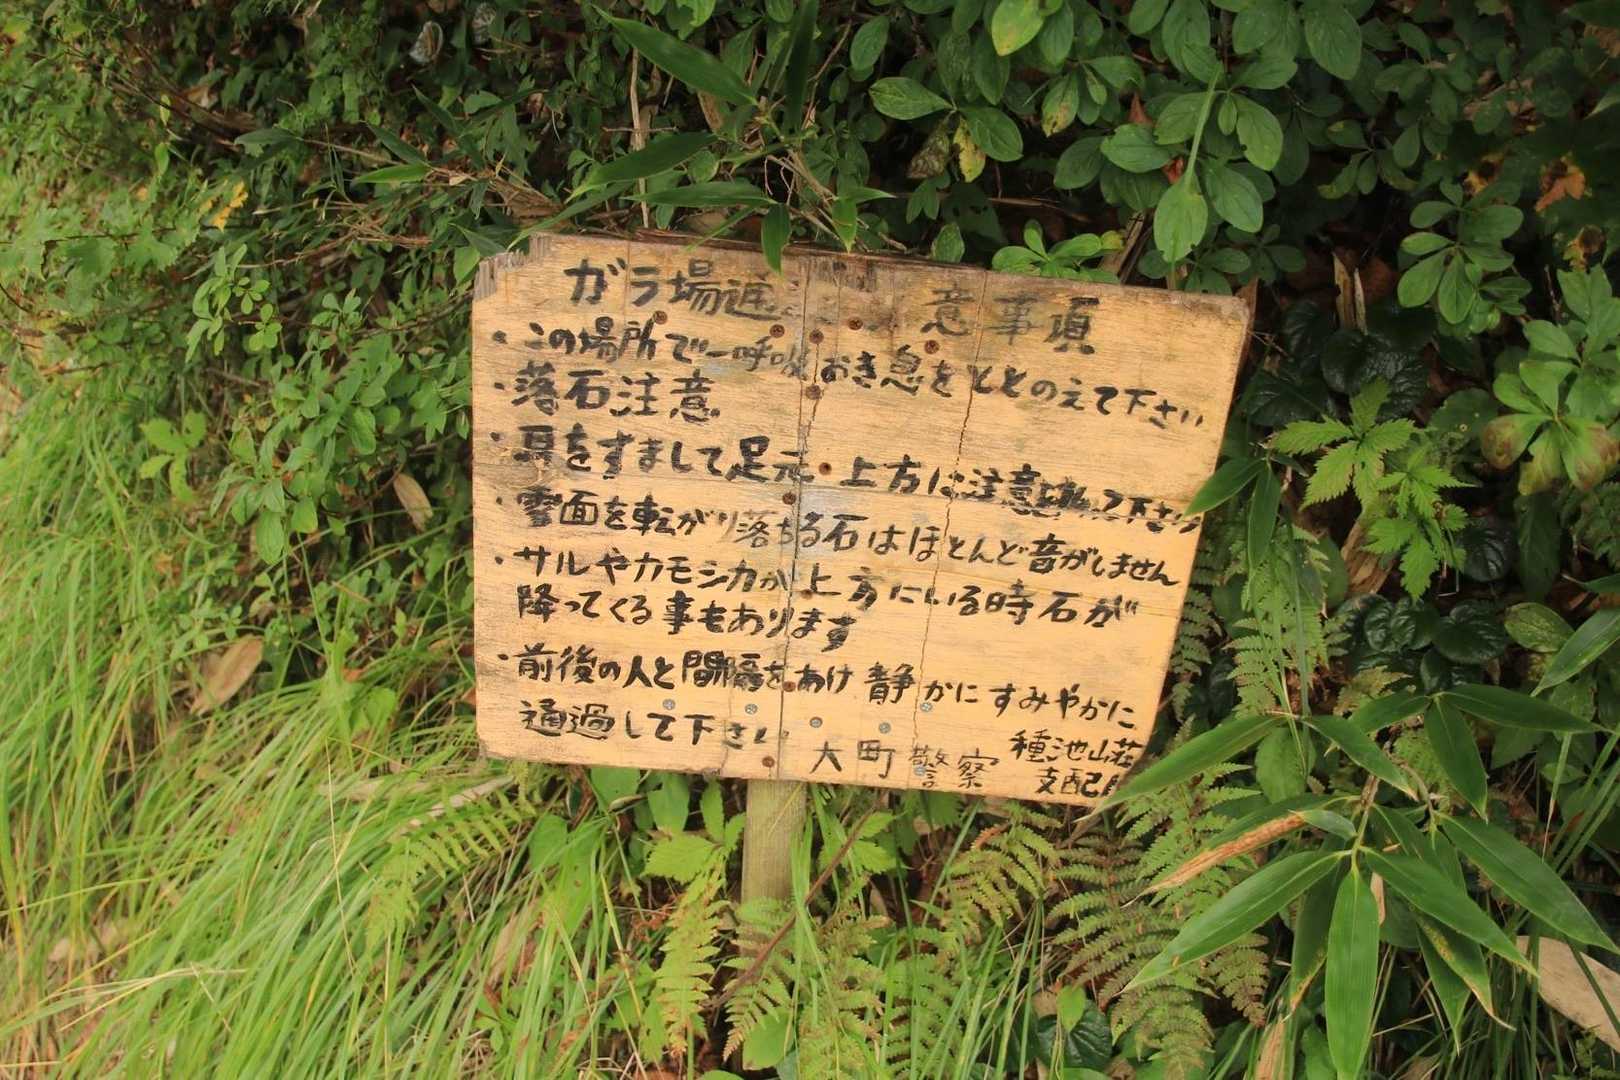 ガラ場通 意事項
・この場所で一呼吸おき息をととのえて下さい
・落石注意
・耳をすまして足元 上方に注意 下さい
・雪面を転がり落ちる石はほとんど音がしません
・サルやカモシカが上方にいる時石が
降ってくる事もあります
・前後の人と間隔をあけ静かにすみやかに
通過して下さい
大町警察
種池山荘
支配